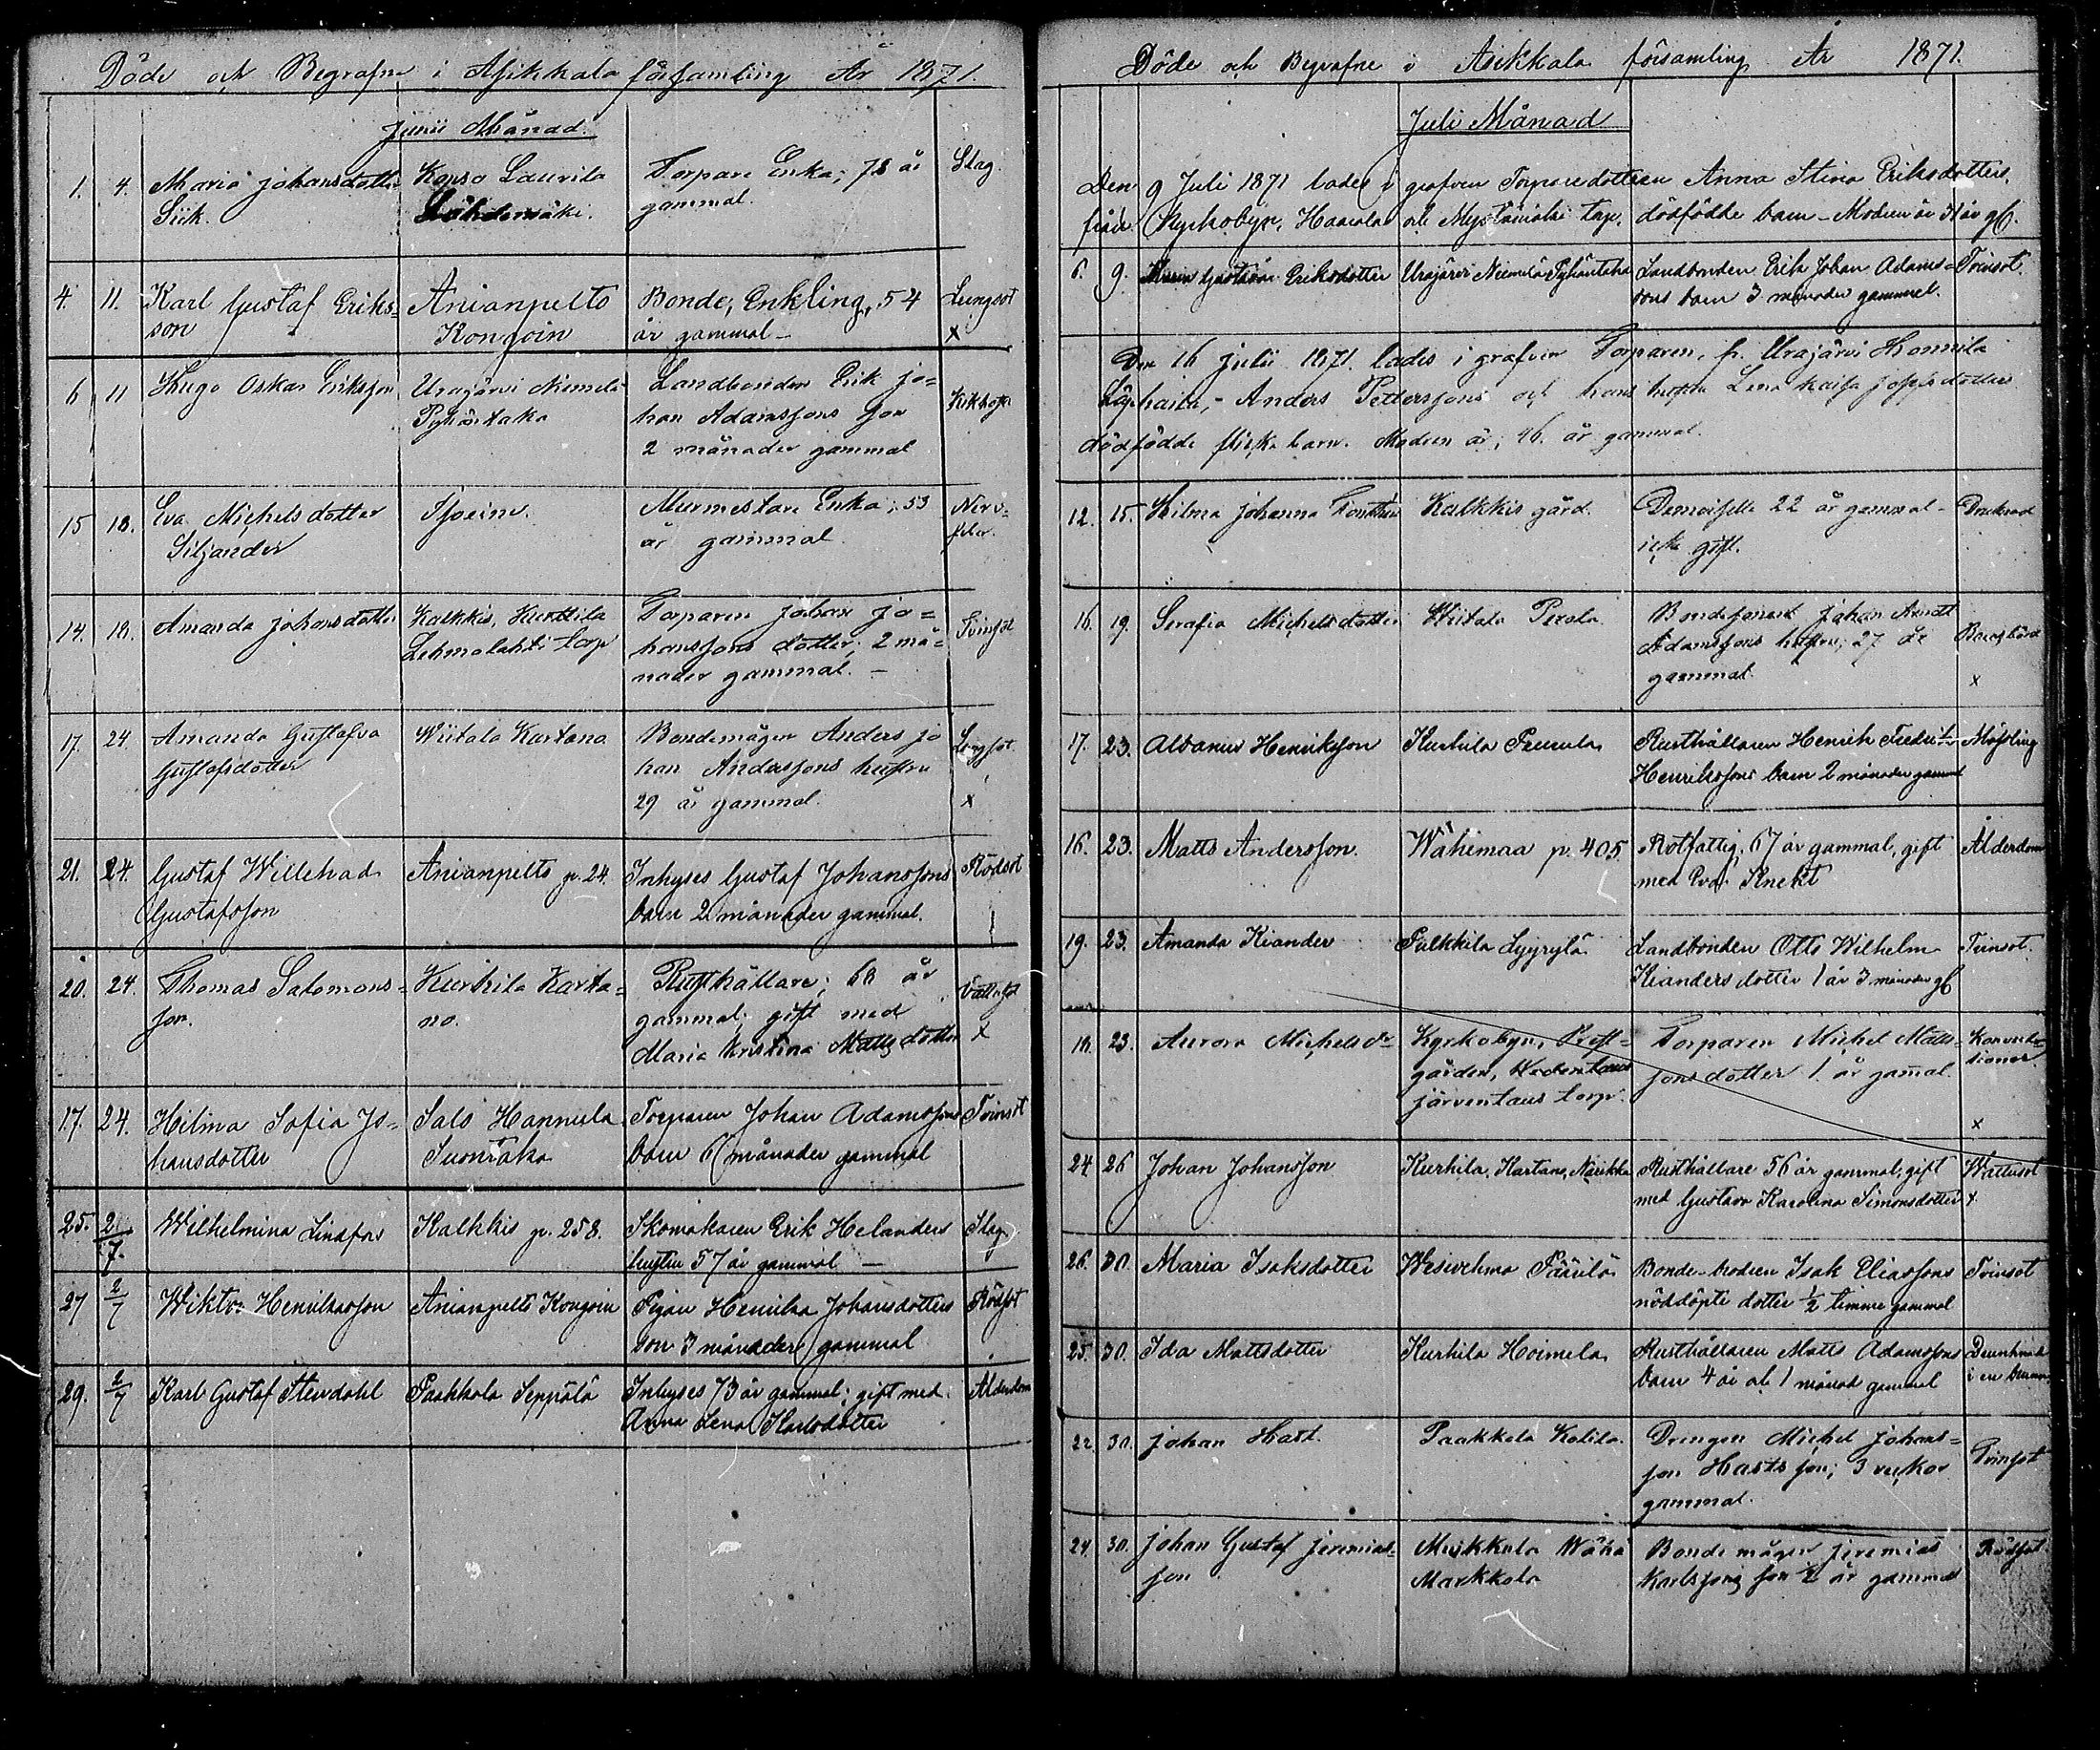 Döde och Begrafne i Asikkala församling År 1871.
Junii Månad.
1. 4. Maria Johansdotter Konso Laurila Torpare Enka; 78 år Slag.
Siik. gammal.
4. 11. Karl Gustaf Eriks- Anianpelto Bonde, Enkling, 54 Lungsot
son Kongoin år gammal – x
6 11 Hugo Oskar Eriksson Urajärvi Niemelä Landbonden Erik Jo- Kikhosta
Pyhäntaka han Adamssons son
2 månader gammal
15 18. Eva Michelsdotter Murmestare Enka; 53 Nerv-
Siljander år gammal. feber.
14. 18. Amanda Johansdotter Kalkkis, Kurttila Torparen Johan Jo- Tvinsot
Lehmolahti torp hanssons dotter; 2 må-
nader gammal. –
17. 24. Amanda Gustafva Wiitala Kartano Bondemågen Anders Jo
Gustafsdotter han Anderssons hustru
29 år gammal. x
21. 24. Gustaf Willehad Anianpelto p. 24. Inhyses Gustaf Johanssons Rödsot
Gustafsson barn 2 månader gammal.
20. 24. Thomas Salomons- Kurhila Karta- Rusthållare; 68 år
son. no. gammal; gift med
Maria Kristina Mattsdotter x
17. 24. Hilma Sofia Jo- Salo Hannula Torparen Johan Adamssons Tvinsot
hansdotter Suontaka barn 6 månader gammal
25. 2/7. Wilhelmina Lindfors Kalkkis p. 258. Skomakaren Erik Helanders Slag
hustru 57 år gammal –
27 2/7 Wiktor Henriksson Anianpelto Kongoin Pigan Henrika Johansdotters Rödsot
son 3 månader gammal
29. 2/7 Karl Gustaf Stendahl Paakkola Seppälä Inhyses 73 år gammal; gift med Ålderdom
Anna Lena Karlsdotter
Döde och Begrafne i Asikkala församling År 1871.
Juli Månad
Den 9 Juli 1871 lades i grafven Torparedottren Anna Stina Eriksdotters,
från Kyrkobyn, Haarala och torp, dödfödde barn – Modren är 31 år gl.
6. 9. Gustava Eriksdotter Urajärvi Niemelä Pyhäntaka Landbonden Erik Johan Adams- Tvinsot.
sons barn 3 månader gammal.
Den 16 Julii 1871 lades i grafven Torparen, fr. Urajärvi
Anders Petterssons och hans hustru Lena Kaisa Josefsdotters
dödfödde flicka barn. Modren är; 46. år gammal.
12. 15. Hilma Johanna Kalkkis gård. Demoiselle 22 år gammal – Drunknad
icke gift.
16. 19. Serafia Michelsdotter Wiitala Perola Johan
Adamssons hustru; 27 år Barnsbörd
gammal. x
17. 23. Albanus Henriksson Kurhila Rusthållaren Henrik Fredrik Mässling
Henrikssons barn 2 månader gammal
16. 23. Matts Andersson. Wähimaa p. 405 Rotfattig, 67 år gammal, gift Ålderdom
med Eva Knekt
19. 23. Amanda Kiander Pulkkila Lyyrylä Landbonden Otto Wilhelm Tvinsot.
Kianders dotter 1 år 3 månader gl
18. 23. Aurora Michelsdr Kyrkobyn, Prest- Torparen Michel Matts-
gården, sons dotter 1. år gamal.
järventaus torp. x
24 26 Johan Johansson Kurhila, Kartano, Narikka Rusthållare 56 år gammal, gift Wattusot
med Gustava Karolina Simonsdotter x
26. 30. Maria Isaksdotter Wesivehmo Bonde-brodren Isak Eliassons Tvinsot
nöddöpte dotter 1/2 timme gammal
25. 30. Ida Mattsdotter Kurhila Hoimela Rusthållaren Matts Adamssons Drunknad
barn 4 år och 1 månad gammal i en brunn
22. 30. Johan Hast. Paakkola Kalila. Drengen Michel Johans- Tvinsot
son Hasts son; 3 veckor
gammal.
24. 30. Johan Gustaf Jeremias- Wähä Bonde mågen Jeremias Rödsot
son Markkola Karlssons son 2 år gammal